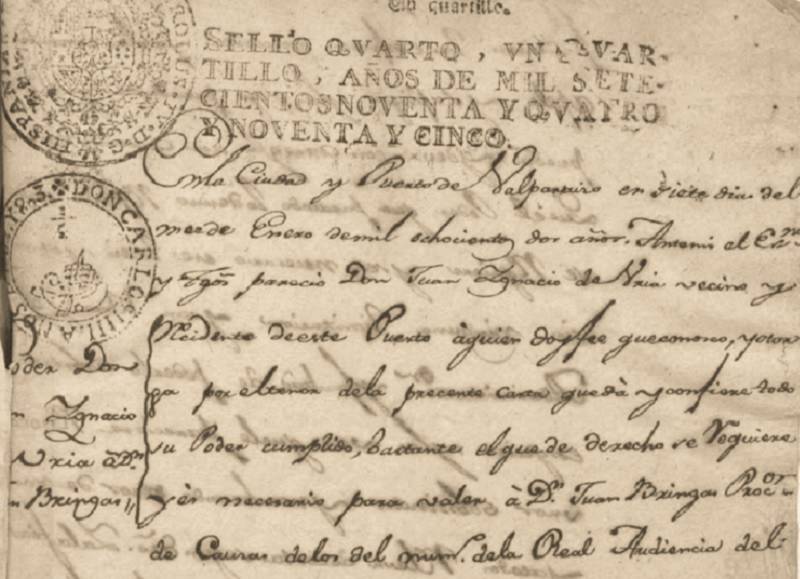 Un quartillo.
SELLO QVARTO, VN QVAR-
TILLO, AÑOS DE MIL SETE-
CIENTOS NOVENTA Y QVATRO
Y NOVENTA Y CINCO.
HISPANIAR
DON CARLOS IIII.
En la Ciudad y Puerto de Valparaiso en siete dias del
mes de Enero de mil ochocientos dos años. Antemi el Esno
y Tgos parecio Don Juan Ygnacio de Vria vecino y
Recidente de este Puerto à quien doy fee que conosco, y otor
ga por el tenor de la precente carta que dà y confiere todo
su Poder cumplido, bastante el que de derecho se Requiere
y és necesario para valer à Dn Juan Bringas Procor
de Causas de los del numo. de la Real Audiencia del
Poder Don
Ygnacio
Vria à Dn
Bringas